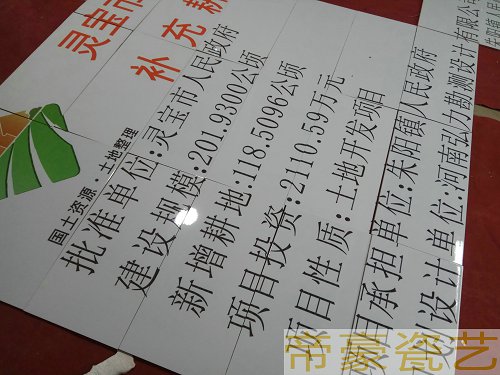 灵宝市
补充耕
国土资源·土地整理
批准单位:灵宝市人民政府
建设规模:201.9300公顷
新增耕地:118.5096公顷
项目投资:2110.59万元
项目性质:土地开发项目
项目承担单位:朱阳镇人民政府
规划设计单位:河南弘力勘测设计有限公司
帝豪瓷艺